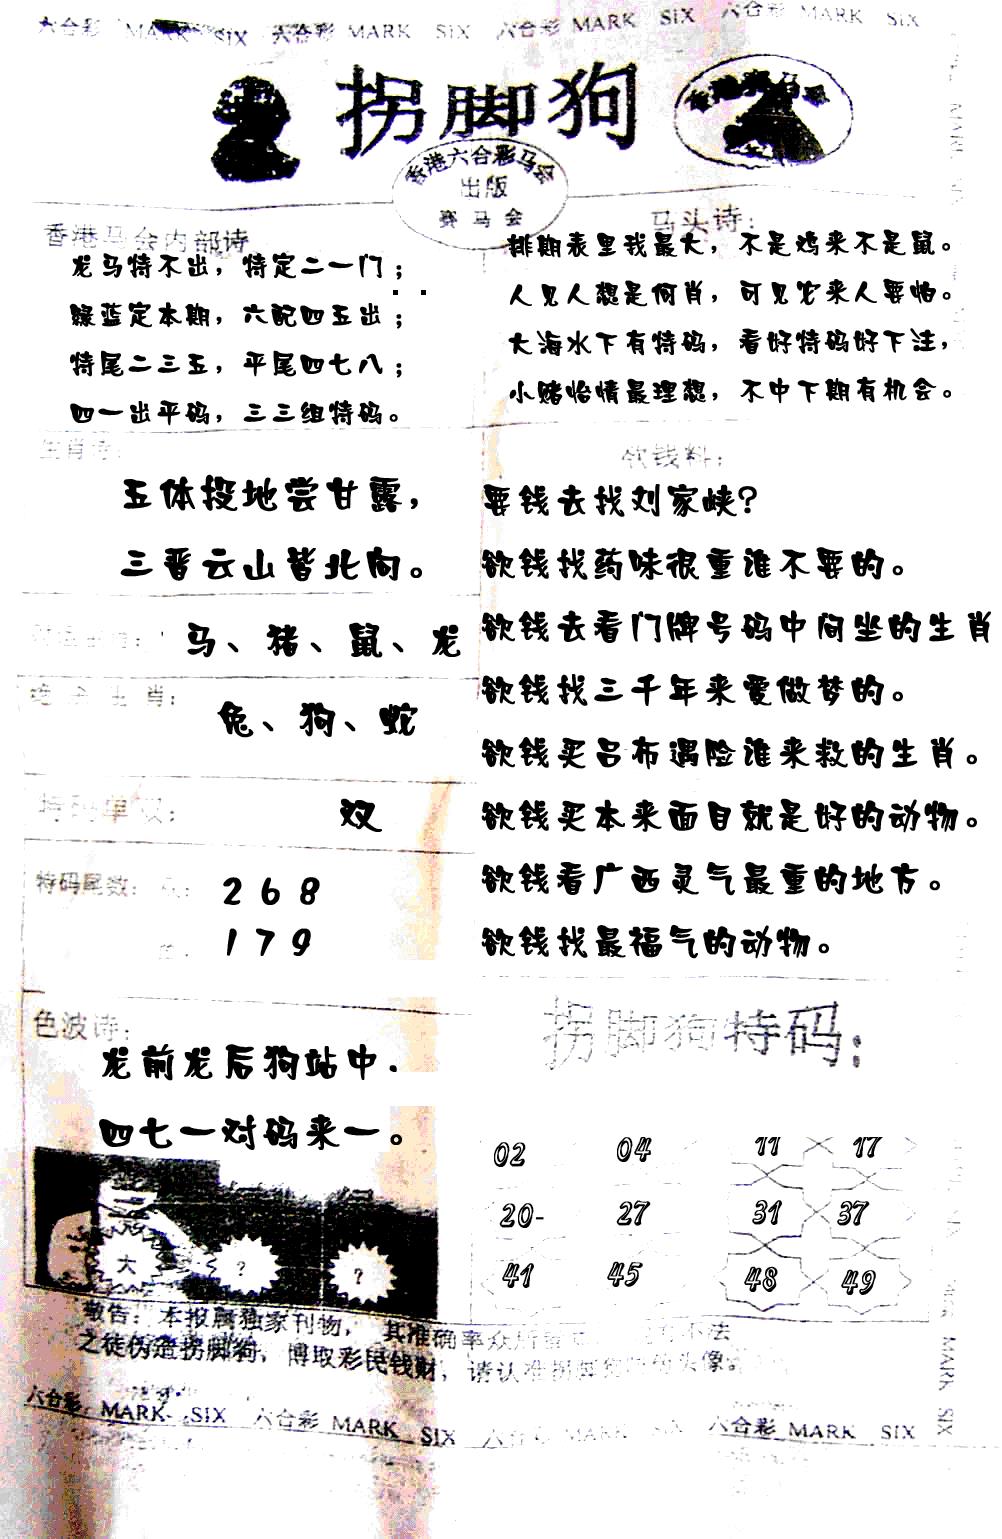 六合彩 MARK SIX 六合彩 MARK SIX 六合彩 MARK SIX 六合彩 MARK SIX
拐脚狗
香港六合彩马会
出版
赛马会
香港马会内部诗
龙马特不出，特定二一门；
绿蓝定本期，六配四五出；
特尾二三五，平尾四七八；
四一出平码，三三组特码。
马头诗：
排期表里我最大，不是鸡来不是鼠。
人见人想是何肖，可见它来人要怕。
大海水下有特码，看好特码好下注，
小赌怡情最理想，不中下期有机会。
生肖诗：
五体投地尝甘露，
三晋云山皆北向。
马、猪、鼠、龙
绝杀生肖：
兔、狗、蛇
特码单双：
双
特码尾数：
2 6 8
1 7 9
欲钱料：
要钱去找刘家峡？
欲钱找药味很重谁不要的。
欲钱去看门牌号码中间坐的生肖
欲钱找三千年来爱做梦的。
欲钱买吕布遇险谁来救的生肖。
欲钱买本来面目就是好的动物。
欲钱看广西灵气最重的地方。
欲钱找最福气的动物。
色波诗：
龙前龙后狗站中．
四七一对码来一。
大 ? ?
拐脚狗特码：
02 04 11 17
20- 27 31 37
41 45 48 49
敬告：本报属独家刊物，其准确率众所 不法
之徒伪造拐脚狗，博取彩民钱财，请认准拐脚 头像
六合彩 MARK SIX 六合彩 MARK SIX 六合彩 MARK SIX 六合彩 MARK SIX
MARK SIX